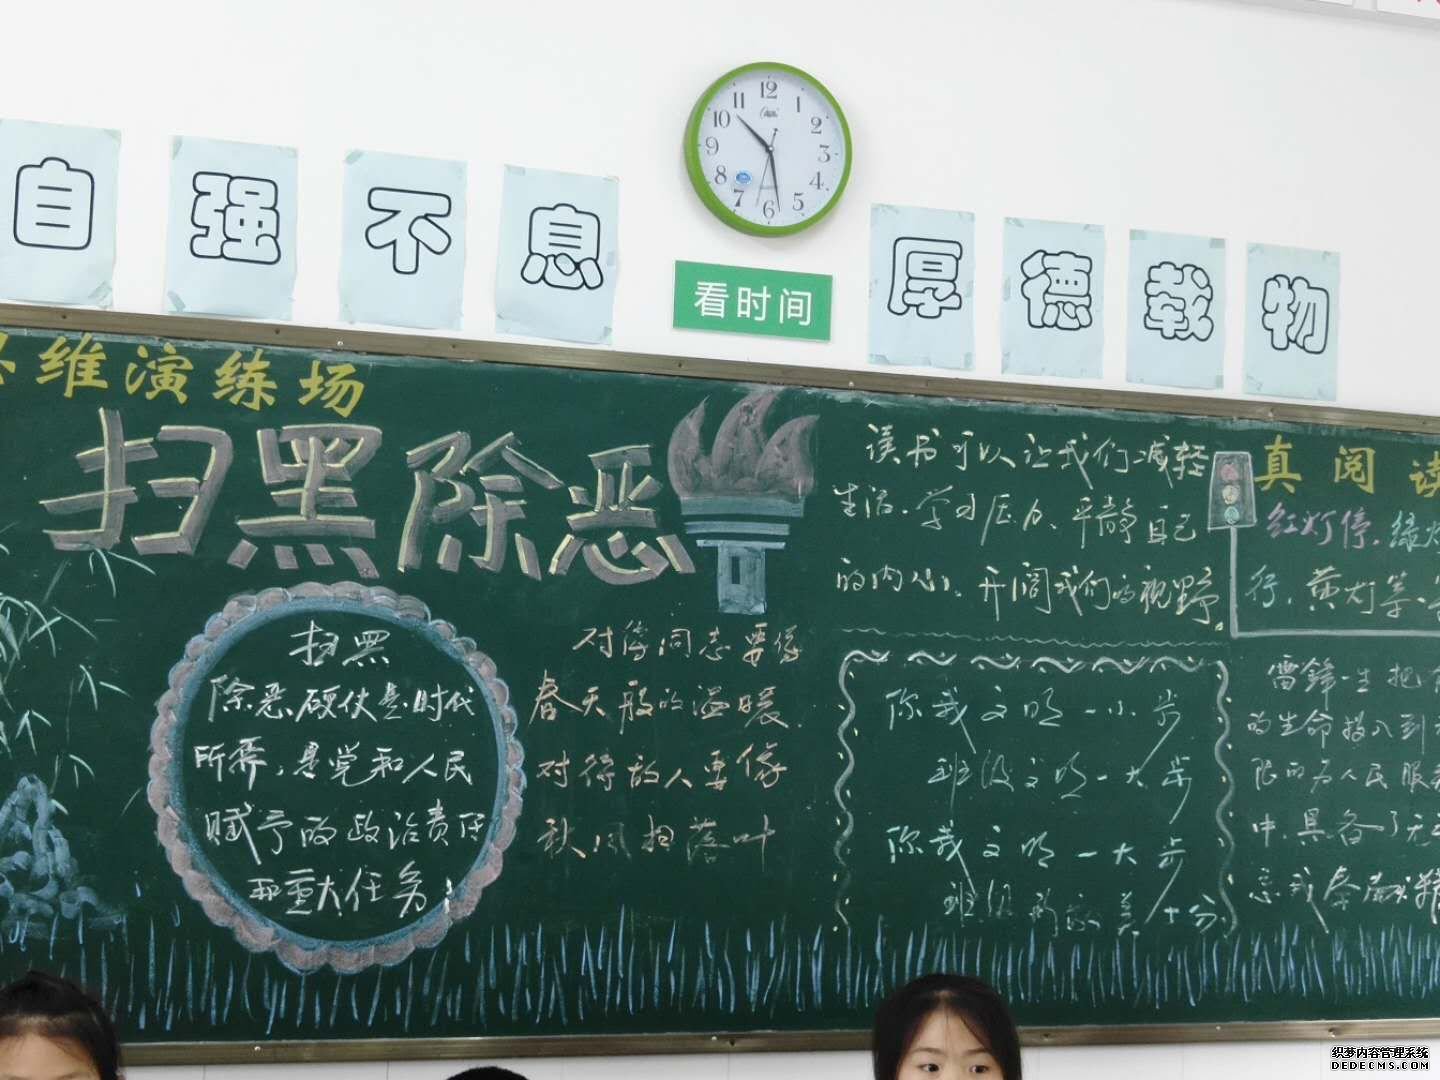 自强不息
厚德载物
12
1
2
3
4
5
6
7
8
9
10
11
看时间
维演练场
扫黑除恶
扫黑
除恶硬仗是时代
所需，是党和人民
赋予的政治责任
和重大任务！
对待同志要像
春天般的温暖
对待敌人要像
秋风扫落叶
读书可以让我们减轻
生活、学习压力、平静自己
的内心、开阔我们的视野。
你我文明一小步
班级文明一大步
你我文明一大步
班级十分
真阅读
红灯停，绿灯
行，黄灯等一等
雷锋一生把有
的生命投入到
限的为人民服务
中，具备了无
忘我奉献精
织梦内容管理系统
DEDECMS.COM